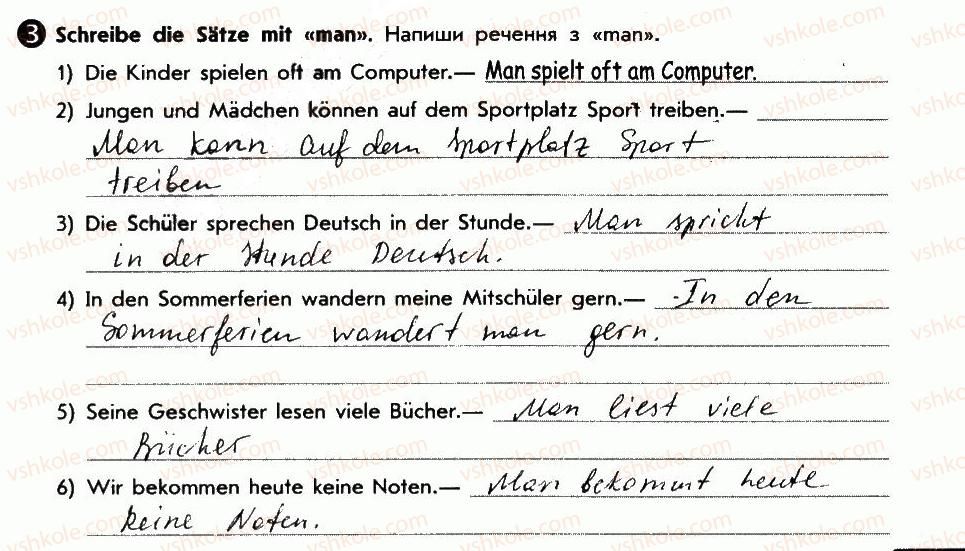 3 Schreibe die Sätze mit «man». Напиши речення з «man».
1) Die Kinder spielen oft am Computer.— Man spielt oft am Computer.
2) Jungen und Mädchen können auf dem Sportplatz Sport treiben.—
Man kann auf dem Sportplatz Sport
treiben
3) Die Schüler sprechen Deutsch in der Stunde.— Man spricht
in der Stunde Deutsch.
4) In den Sommerferien wandern meine Mitschüler gern.— In den
Sommerferien wandert man gern.
5) Seine Geschwister lesen viele Bücher.— Man liest viele
Bücher
6) Wir bekommen heute keine Noten.— Man bekommt heute
keine Noten.
vshkole.com